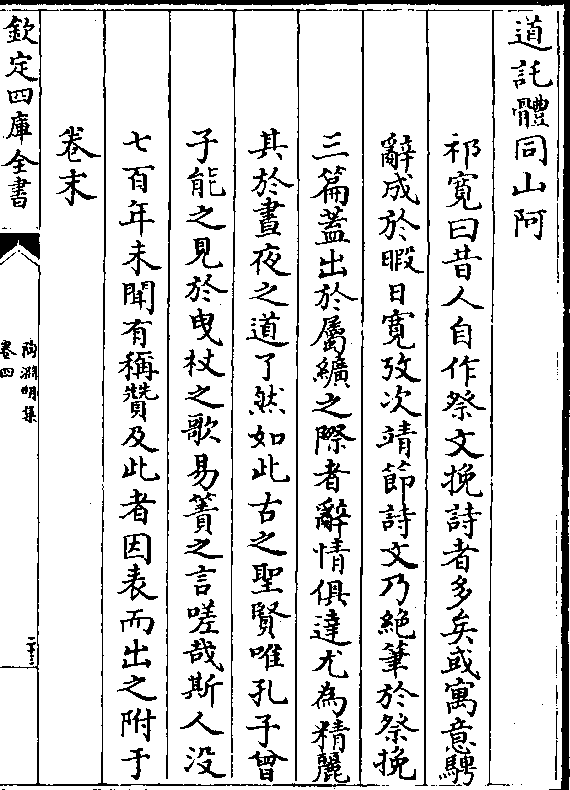 道託體同山阿
祁寛曰昔人自作祭文挽詩者多矣或寓意騁
辭成於暇日寛攷次靖節詩文乃絶筆於祭挽
三篇蓋出於屬纊之際者辭情俱達尤為精麗
其於晝夜之道了然如此古之聖賢唯孔子曾
子能之見於曳杖之歌易簀之言嗟哉斯人没
七百年未聞有稱贊及此者因表而出之附于
卷末
欽定四庫全書
陶淵明集
卷四
二十三